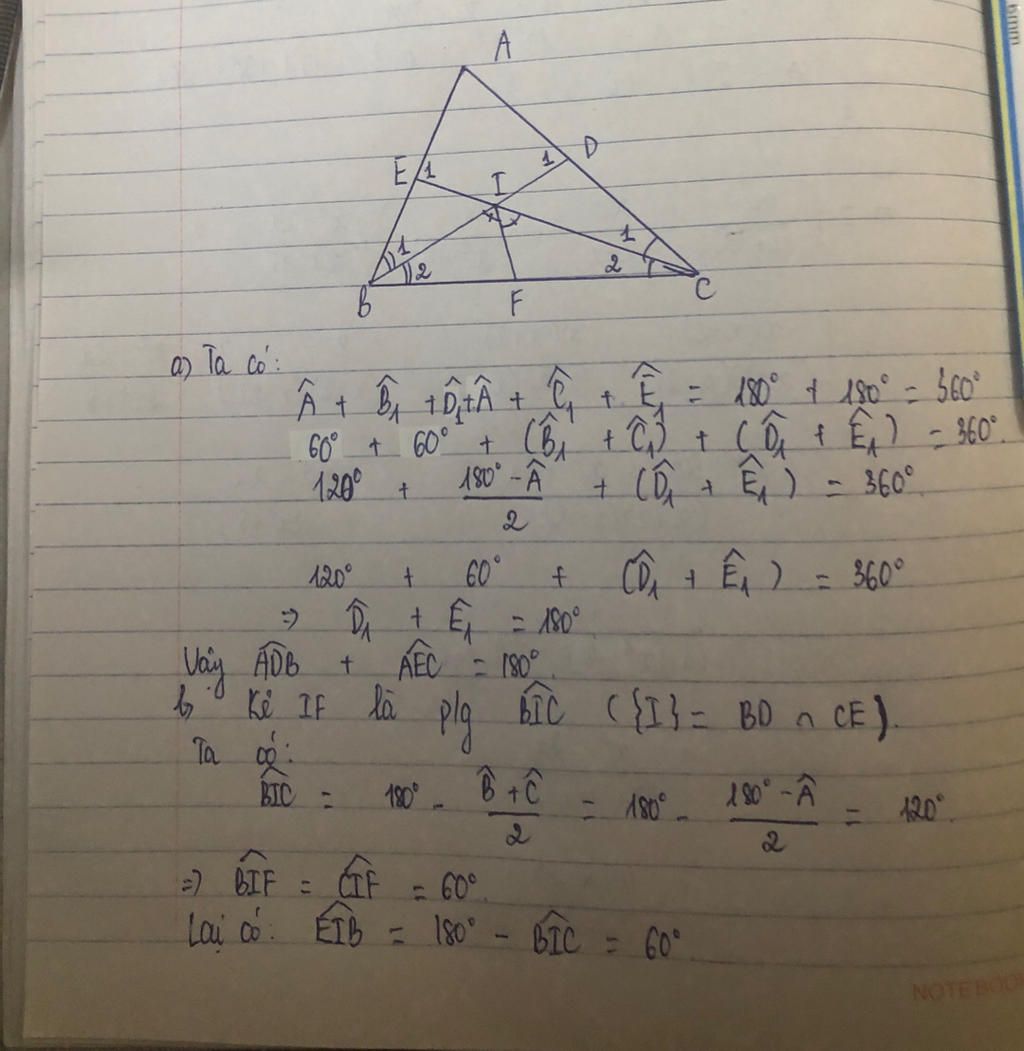 A
E 1
1 D
I
1
2
1
2
B
F
C
a) Ta có:
Â + B̂₁ + D̂₁ + Â + Ĉ₁ + Ê₁ = 180° + 180° = 360°
60° + 60° + (B̂₁ + Ĉ₁) + (D̂₁ + Ê₁) = 360°.
120° + (180° - Â)/2 + (D̂₁ + Ê₁) = 360°.
120° + 60° + (D̂₁ + Ê₁) = 360°
=> D̂₁ + Ê₁ = 180°
Vậy \widehat{ADB} + \widehat{AEC} = 180°.
b, Kẻ IF là p/g \widehat{BIC} ({I} = BD ∩ CE).
Ta có:
\widehat{BIC} = 180° - (B̂ + Ĉ)/2 = 180° - (180° - Â)/2 = 120°.
=> \widehat{BIF} = \widehat{CIF} = 60°.
Lại có: \widehat{EIB} = 180° - \widehat{BIC} = 60°
NOTEBOOK
6mm